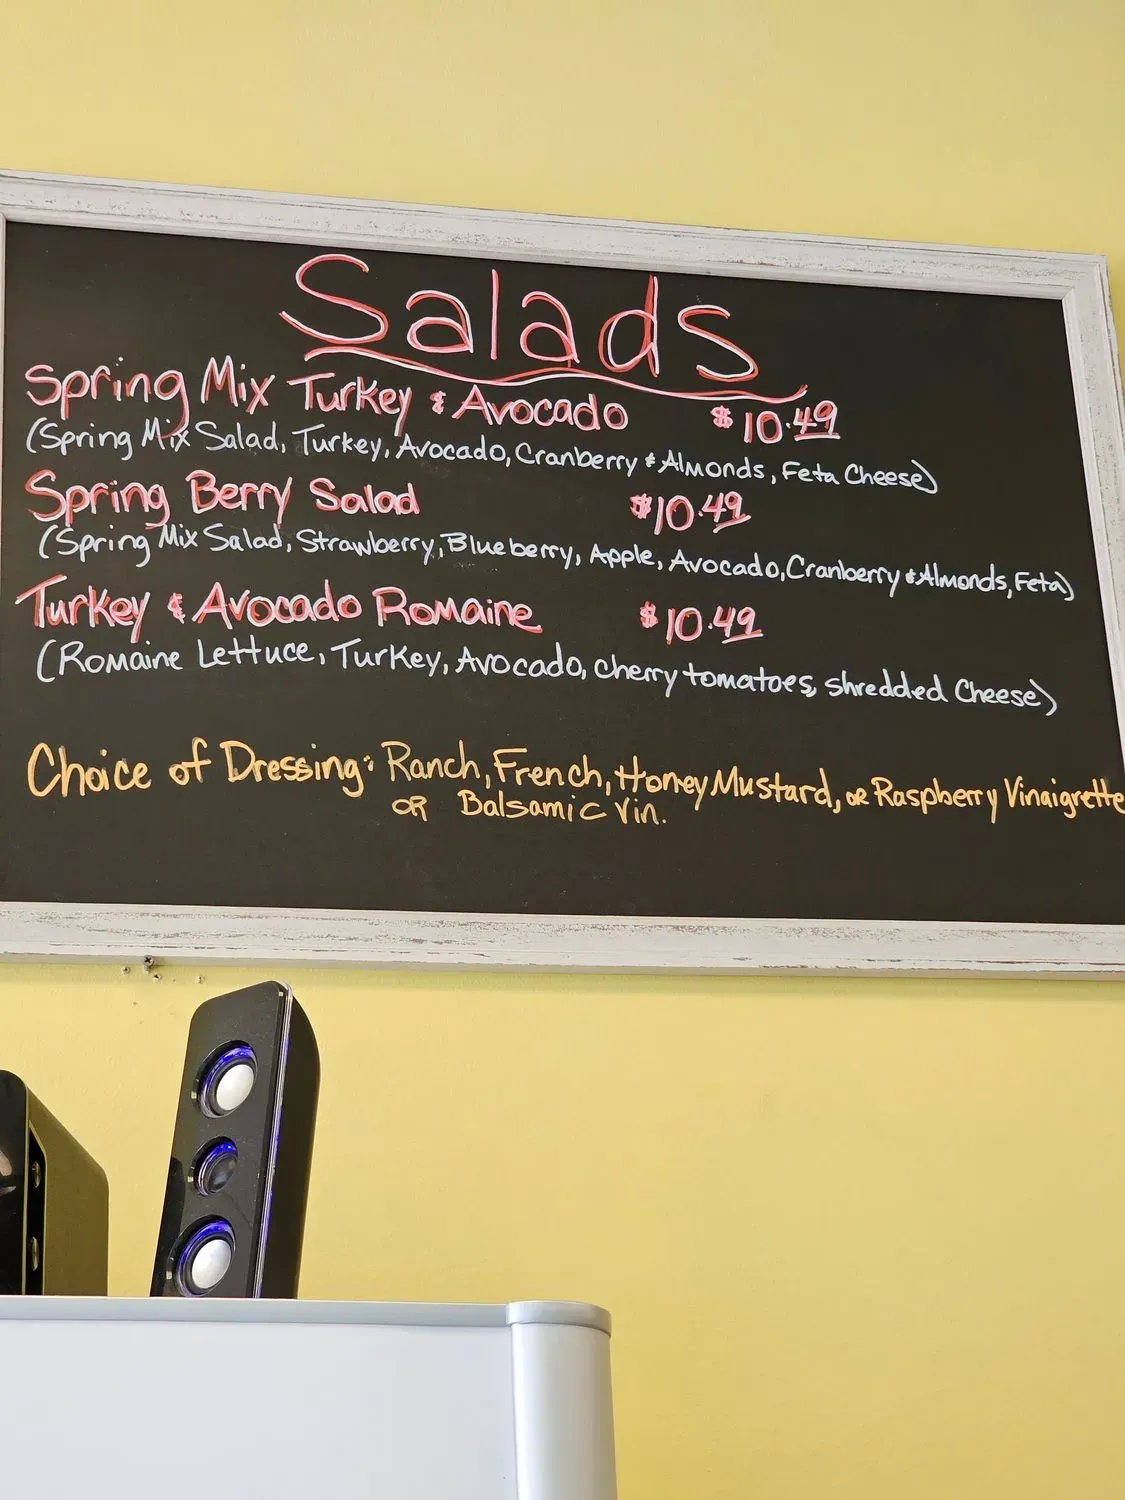 Salads
Spring Mix Turkey & Avocado $10.49
(Spring Mix Salad, Turkey, Avocado, Cranberry & Almonds, Feta Cheese)
Spring Berry Salad $10.49
(Spring Mix Salad, Strawberry, Blueberry, Apple, Avocado, Cranberry & Almonds, Feta)
Turkey & Avocado Romaine $10.49
(Romaine Lettuce, Turkey, Avocado, cherry tomatoes, shredded Cheese)
Choice of Dressing: Ranch, French, Honey Mustard, or Raspberry Vinaigrette
OR Balsamic Vin.